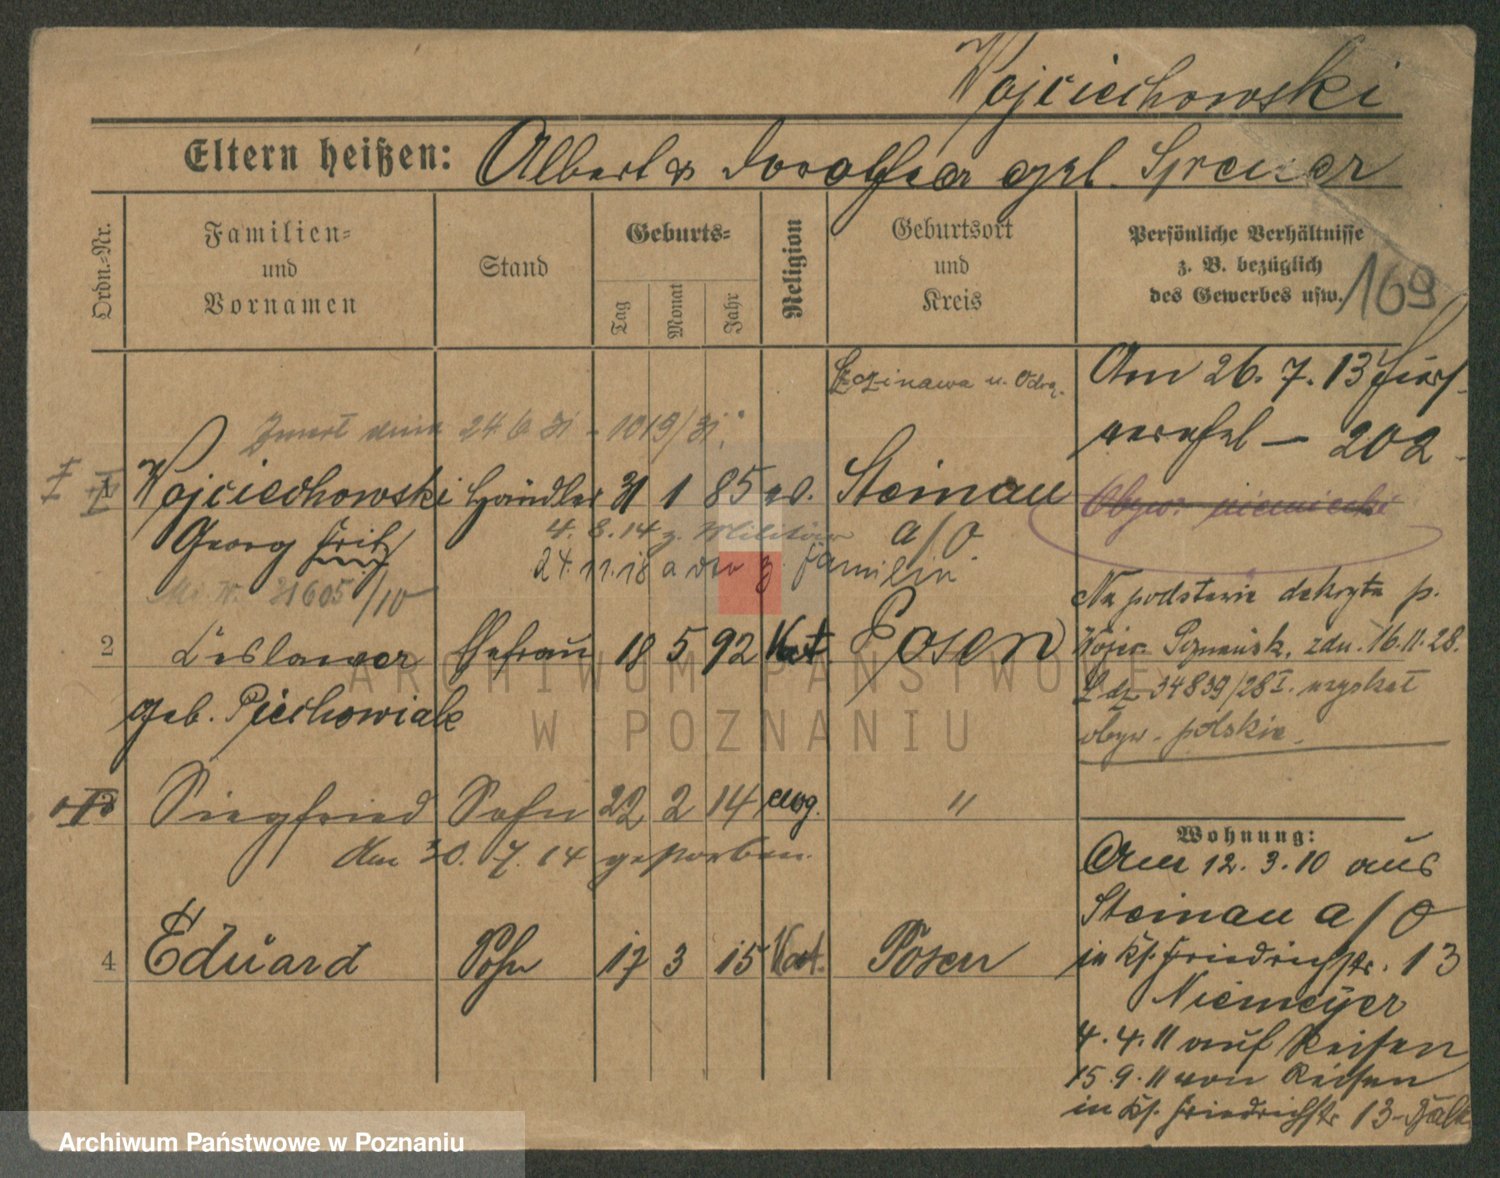 Wojciechowski
Eltern heißen: Albert & Dorothea geb.
Ordn.-Nr.
Familien-
und
Vornamen
Stand
Geburts-
Tag
Monat
Jahr
Religion
Geburtsort
und
Kreis
Persönliche Verhältnisse
z. B. bezüglich
des Gewerbes usw.
169
Am 26. 7. 13
202
24. 6. 31 - 1019/31
1 Wojciechowski Händler 31 1 85 ev. Steinau
a/O
Georg
4. 8. 14 z. Militär
24. 11. 18 z. Familie
31605/10
Obyw. niemieckie
2 Ehefrau 18 5 92 Kat. Posen
geb. Piechowiak
Na podstawie dekretu p.
Wojew. Poznańsk. zdn. 16.11.28.
L. dz. 34839/28 I. uzyskał
obyw. polskie.
3 Siegfried Sohn 22 2 14 evg. "
Am 30. 7. 14 gestorben.
4 Eduard Sohn 17 3 15 Kat. Posen
Wohnung:
Am 12. 3. 10 aus
Steinau a/O
in Ks. Friedrichstr. 13
Niemeyer
4. 4. 11 auf Reisen
15. 9. 11 von Reisen
in Ks. Friedrichstr 13
ARCHIWUM PAŃSTWOWE
W POZNANIU
Archiwum Państwowe w Poznaniu